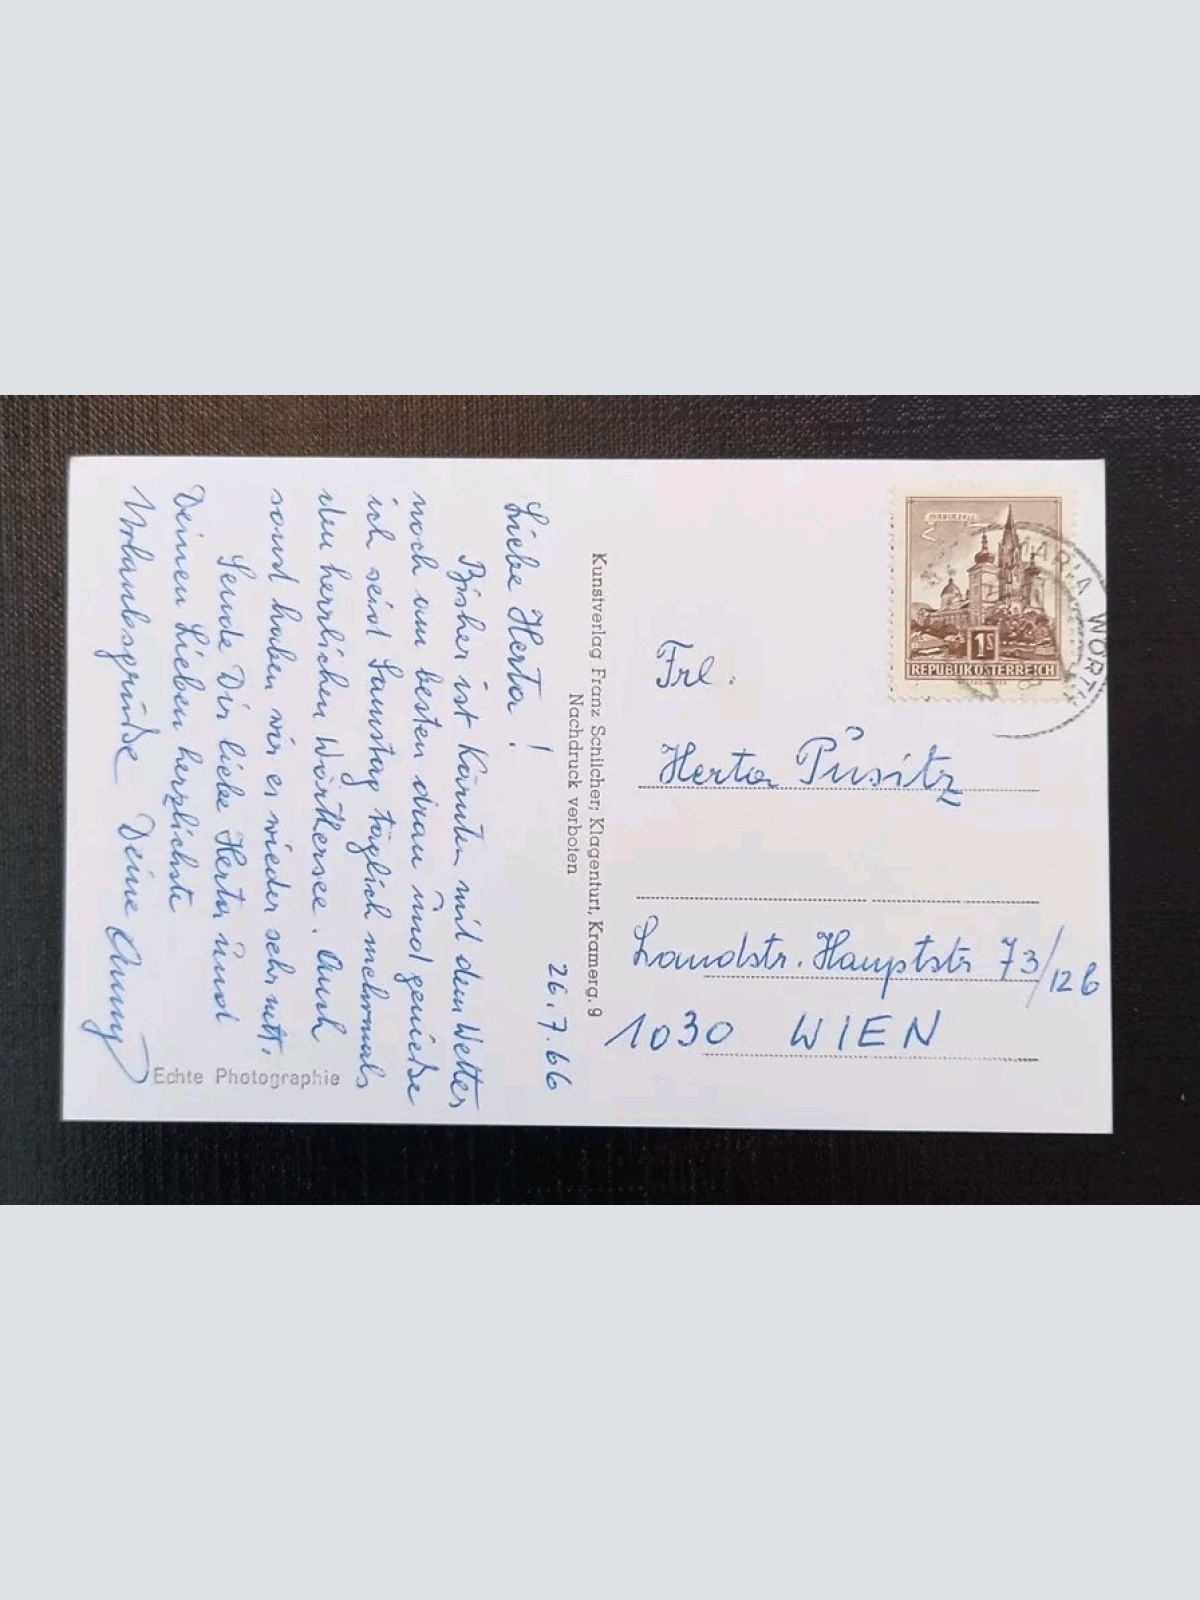 26.7.66
Liebe Herta!
Bisher ist Kärnten mit dem Wetter
noch am besten dran und genieße
ich seit Samstag täglich mehrmals
den herrlichen Wörthersee. Auch
sonst haben wir es wieder sehr nett.
Sende Dir liebe Herta und
Deinen Lieben herzlichste
Urlaubsgrüße Deine Anny
Echte Photographie
Kunstverlag Franz Schilcher, Klagenfurt, Kramerg. 9
Nachdruck verboten
MARIAZELL
1S
REPUBLIK ÖSTERREICH
MARIA WÖRTH
Frl.
Herta Pusitz
Landstr. Hauptstr 73/12b
1030 WIEN